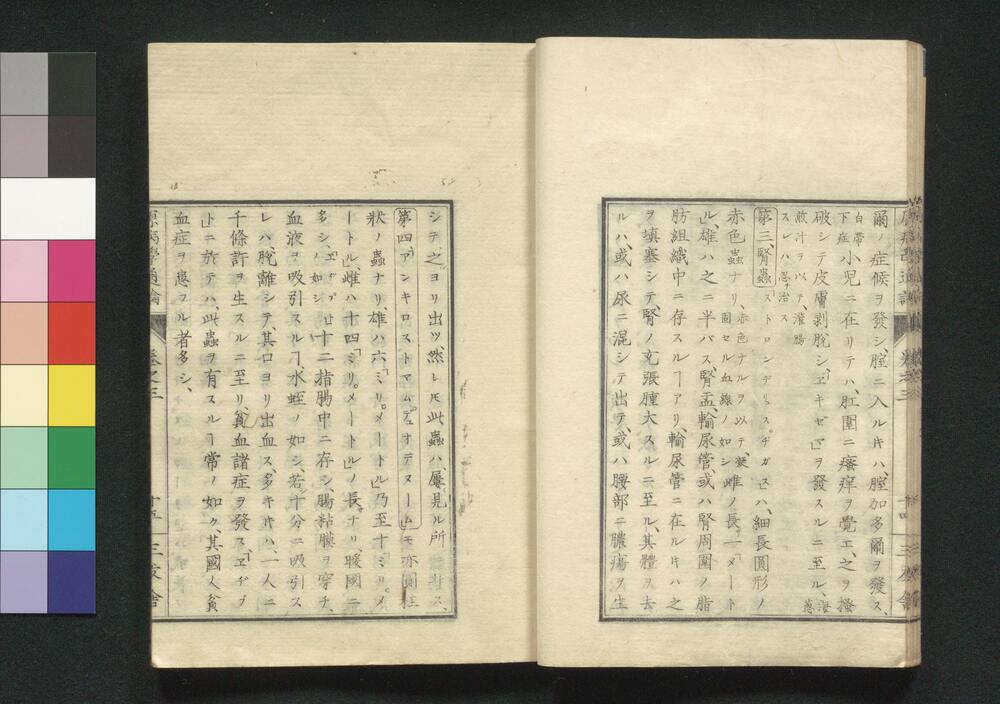 爾ノ症候ヲ發シ、腟ニ入ルキハ、腟加多爾ヲ發ス、
白帶下症 小兒ニ在リテハ、肛圍ニ瘙痒ヲ覺エ、之ヲ搔
破シテ皮膚剥脫シ、「エキゼマ」ヲ發スルニ至ル、海葱
煎汁ヲ以テ、灌腸
スレハ忽チ治ス
第三、腎蟲 「ストロンヂリュス、ヂガス」ハ、細長圓形ノ
赤色蟲ナリ、赤色ナルヲ以テ、凝固セル血線ノ如シ 雌ノ長一「メート
ル」、雄ハ之ニ半バス、腎盂、輸尿管或ハ腎周圍ノ脂
肪組織中ニ存スルヿアリ、輸尿管ニ在ルキハ之
ヲ填塞シテ、腎ノ充張腫大スルニ至ル、其體ヲ去
ルハ、或ハ尿ニ混シテ出テ、或ハ腰部ニ膿瘍ヲ生
シテ、之ヨリ出ツ、然レ𪜈此蟲ハ、屢見ル所
第四、「アンキロストマムデュオデヌーム」モ亦圓柱
狀ノ蟲ナリ雄ハ六「ミリメートル」乃至十「ミリメ
ートル」、雌ハ十四「ミリメートル」ノ長ナリ、暖國ニ
多シ、エヂプトノ如シ 十二指腸中ニ存シ腸粘膜ヲ穿チ、
血液ヲ吸引スルヿ、水蛭ノ如シ、若シ十分ニ吸引ス
レハ、脫離シテ、其口ヨリ出血ス、多キキハ、一人ニ
千條許ヲ生スルニ至リ、貧血諸症ヲ發ス、「エヂプ
ト」ニ於テハ、此蟲ヲ有スルヿ常ノ如ク、其國人貧
血症ヲ患フル者多シ、
原病學通論
卷之三
十五
三友舍